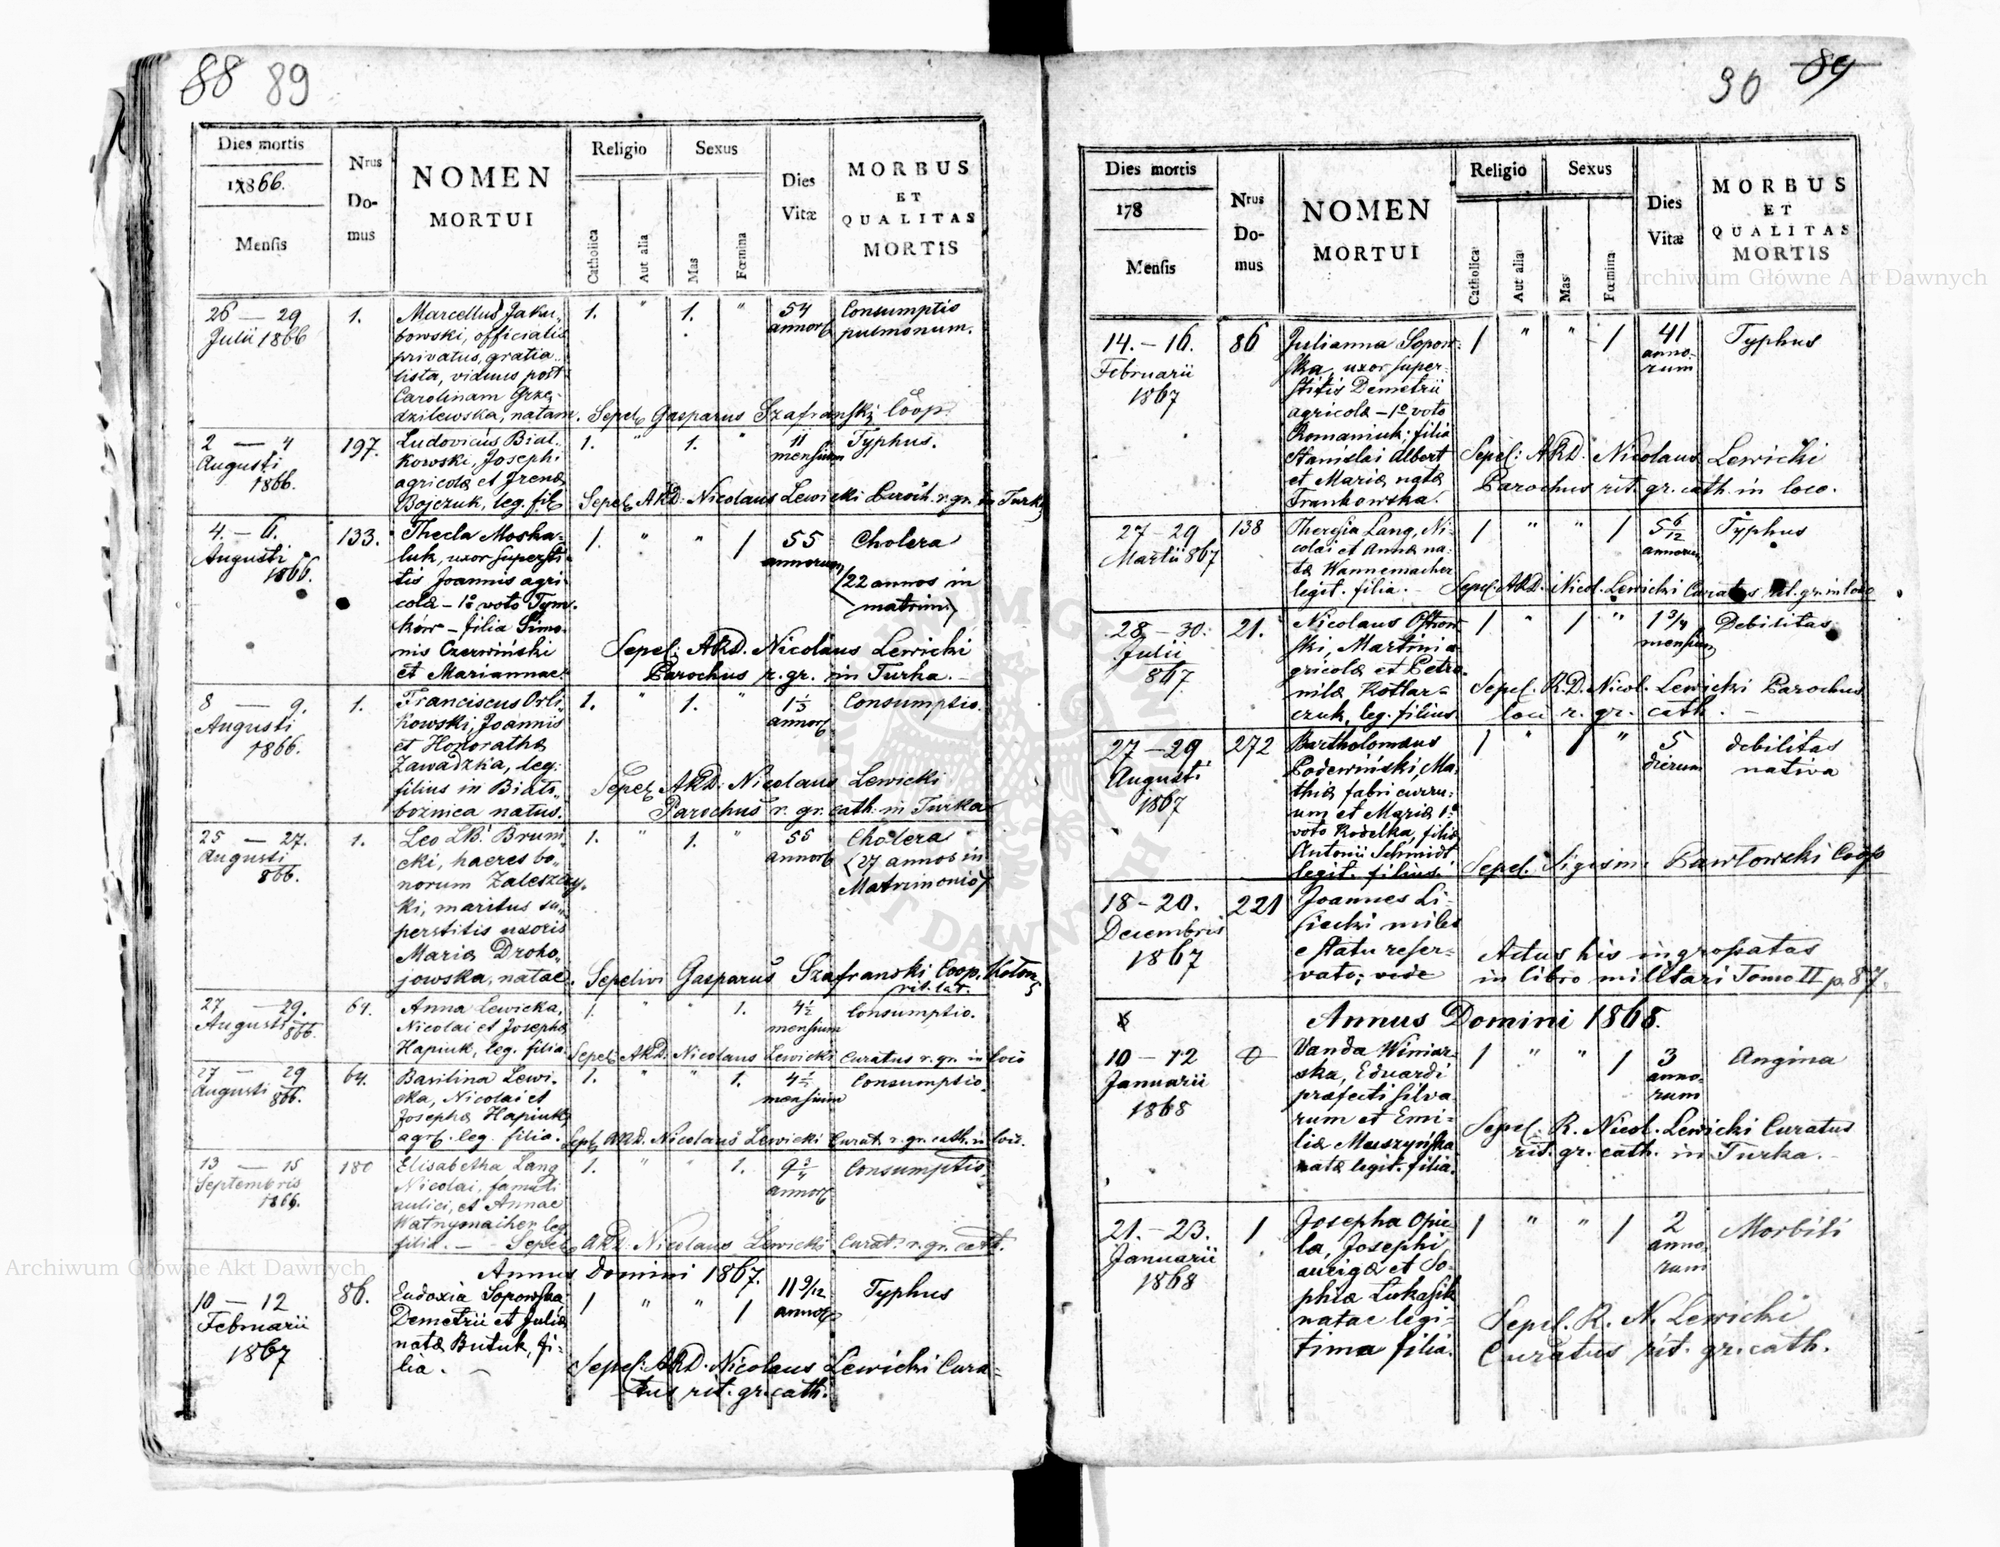 88 89
Dies mortis
1866.
Mensis
Nrus
Do-
mus
NOMEN
MORTUI
Religio
Catholica
Aut alia
Sexus
Mas
Fœmina
Dies
Vitæ
MORBUS
ET
QUALITAS
MORTIS
26 — 29
Julii 1866
1.
Marcellus Jaku-
bowski, officialis
privatus, gratia-
lista, viduus post
Carolinam Grzę-
dzilewska, natam.
1. " 1. "
54
annor
Consumptio
pulmonum.
Sepel Gasparus Szafrański Coop.
2 — 4
Augusti
1866.
197.
Ludovicus Biał-
kowski, Josephi
agricolæ et Irenæ
Bojczuk, leg. fil
1. " 1. "
11
mensium
Typhus.
Sepel ARD. Nicolaus Lewicki Paroch. r. gr. in Turka
4. — 6.
Augusti
1866.
133.
Thecla Moska-
luk, uxor supersti-
tis Joannis agri-
colæ — 1o voto Tym-
ków — filia Simo-
nis Czerwiński
et Mariannae
1. " " 1
55
annorum
Cholera
(22 annos in
matrim.)
Sepel: ARD. Nicolaus Lewicki
Parochus r. gr. in Turka. —
8 — 9.
Augusti
1866.
1.
Franciscus Orli-
kowski, Joannis
et Honorathæ
Zawadzka, leg.
filius in Biało-
boznica natus.
1. " 1. "
annor
Consumptio.
Sepel ARD. Nicolaus Lewicki
Parochus r. gr. cath. in Turka
25 — 27.
Augusti
866.
1.
Leo LB. Bruni-
cki, haeres bo-
norum Zaleszczy-
ki, maritus su-
perstitis uxoris
Mariæ Droho-
jowska, natae.
1. " 1. "
55
annor
Cholera
(27 annos in
Matrimonio)
Sepelivi Gasparus Szafranski Coop.
rit. lat.
27 — 29.
Augusti 866.
64.
Anna Lewicka,
Nicolai et Josephæ
Hapiuk, leg. filia.
1. " " 1.
4½
mensium
Consumptio.
Sepel ARD. Nicolaus Lewicki Curatus r. gr. in loco
27 — 29
Augusti 866.
64.
Basilina Lewi-
cka, Nicolai et
Josephæ Hapiuk
agr. leg. filia.
1. " " 1.
4½
mensium
Consumptio.
Sepel ARD. Nicolaus Lewicki Curat. r. gr. cath. in loco.
13 — 15
Septembris
1866.
180
Elisabetha Lang
Nicolai, famuli
aulici, et Annae
leg
filia. — Sepel
1. " " 1.
9¾
annor
Consumptio.
ARD. Nicolaus Lewicki Curat. r. gr. cath.
Annus Domini 1867.
10 — 12
Februarii
1867
86.
Eudoxia Soposka
Demetrii et Juliæ
natæ Butuk, fi-
lia. —
1 " " 1
11 9/12
annor
Typhus
Sepel: ARD. Nicolaus Lewicki Cura-
tus rit. gr. cath.
90 89
Dies mortis
178
Mensis
Nrus
Do-
mus
NOMEN
MORTUI
Religio
Catholica
Aut alia
Sexus
Mas
Fœmina
Dies
Vitæ
MORBUS
ET
QUALITAS
MORTIS
14. — 16.
Februarii
1867
86
Julianna Sopow-
ska, uxor super-
stitis Demetrii
agricolæ — 1o voto
Romaniuk; filia
Stanislai Albert
et Mariæ natæ
Frankowska.
1 " " 1
41
anno-
rum
Typhus
Sepel: ARD. Nicolaus Lewicki
Parochus rit. gr. cath. in loco.
27 — 29
Martii 867
138
Theresia Lang, Ni-
colai et Annæ na-
tæ Wannemacher
legit. filia. —
1 " " 1
5 6/12
annorum
Typhus
Sepel. ARD. Nicol. Lewicki Curatus rit. gr. in loco
28 — 30.
Julii
867
21.
Nicolaus Ostrow-
ski, Martini a-
gricolæ et Petro-
nilæ Kotlar-
czuk, leg. filius.
1 " 1 "
1 3/4
mensium
Debilitas
Sepel. R.D. Nicol. Lewicki Parochus
loci r. gr. cath. —
27 — 29
Augusti
1867
272
Bartholomæus
Podewiński, Ma-
thiæ fabri curru-
um et Mariæ 1o
voto Kodelka, filiæ
Antonii Schmidt
legit. filius.
1 " 1 "
5
dierum
debilitas
nativa
Sepel. Sigism. Pawlowski Coop
18 — 20.
Decembris
1867
221
Joannes Li-
siecki miles
e statu reser-
vato; vide
Actus his ingrossatus
in libro militari Tomo II p. 87.
Annus Domini 1868.
10 — 12
Januarii
1868
Vanda Winiar-
ska, Eduardi
præfecti silva-
rum et Emi-
liæ Muszyńska
natæ legit. filia.
1 " " 1
3
anno-
rum
Angina
Sepel. R. Nicol. Lewicki Curatus
rit. gr. cath. in Turka. —
21. — 23.
Januarii
1868
1
Josepha Opie-
la, Josephi
aurigæ et So-
phiæ Lukasik
natae legi-
tima filia.
1 " " 1
2
anno-
rum
Morbili
Sepel. R. N. Lewicki
Curatus rit. gr. cath.
Archiwum Główne Akt Dawnych
Archiwum Główne Akt Dawnych